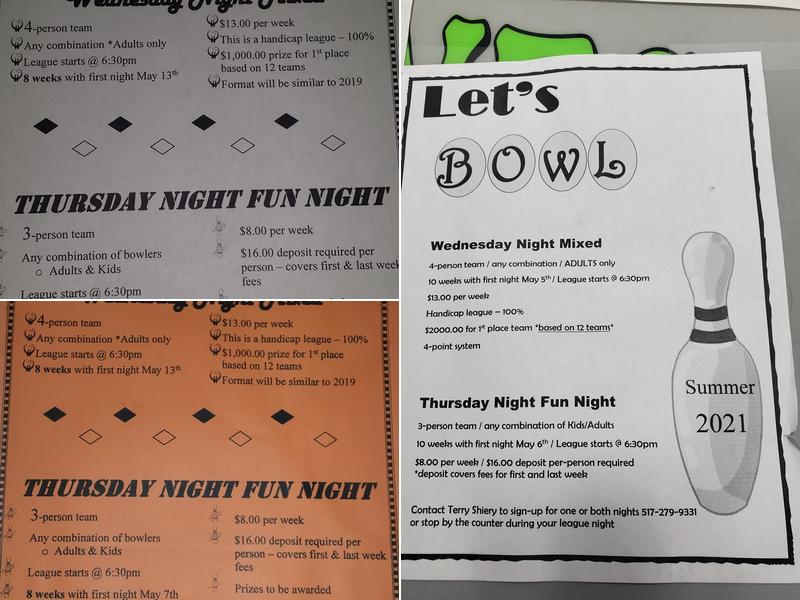 Wednesday Night Mixed
4-person team
Any combination *Adults only
League starts @ 6:30pm
8 weeks with first night May 13th
$13.00 per week
This is a handicap league – 100%
$1,000.00 prize for 1st place
based on 12 teams
Format will be similar to 2019
THURSDAY NIGHT FUN NIGHT
3-person team
Any combination of bowlers
o Adults & Kids
League starts @ 6:30pm
$8.00 per week
$16.00 deposit required per
person – covers first & last week
fees
Wednesday Night Mixed
4-person team
Any combination *Adults only
League starts @ 6:30pm
8 weeks with first night May 13th
$13.00 per week
This is a handicap league – 100%
$1,000.00 prize for 1st place
based on 12 teams
Format will be similar to 2019
THURSDAY NIGHT FUN NIGHT
3-person team
Any combination of bowlers
o Adults & Kids
League starts @ 6:30pm
8 weeks with first night May 7th
$8.00 per week
$16.00 deposit required per
person – covers first & last week
fees
Prizes to be awarded
Let's
BOWL
Wednesday Night Mixed
4-person team / any combination / ADULTS only
10 weeks with first night May 5th / League starts @ 6:30pm
$13.00 per week
Handicap league – 100%
$2000.00 for 1st place team *based on 12 teams*
4-point system
Thursday Night Fun Night
3-person team / any combination of Kids/Adults
10 weeks with first night May 6th / League starts @ 6:30pm
$8.00 per week / $16.00 deposit per-person required
*deposit covers fees for first and last week
Contact Terry Shiery to sign-up for one or both nights 517-279-9331
or stop by the counter during your league night
Summer
2021